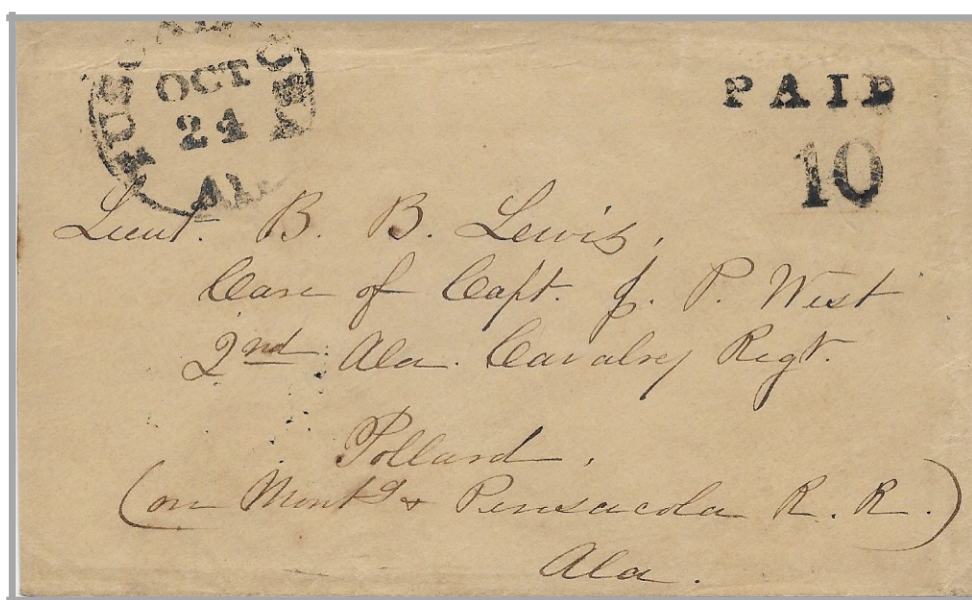 TUSCALOOSA
OCT
24
Ala.
PAID
10
Lieut. B. B. Lewis,
Care of Capt. J. P. West
2nd Ala. Cavalry Regt.
Pollard,
(on Montg & Pensacola R. R.)
Ala.